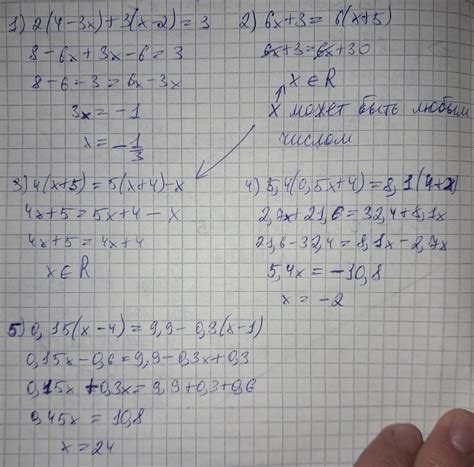 1) 2(4-3x)+3(x-2)=3
8-6x+3x-6=3
8-6-3=6x-3x
3x=-1
x=-1/3
2) 6x+3=6(x+5)
6x+3=6x+30
x∈R
x может быть любым
числом
3) 4(x+5)=5(x+4)-x
4x+5=5x+4-x
4x+5=4x+4
x∈R
4) 5,4(0,5x+4)=8,1(4+x)
2,7x+21,6=32,4+8,1x
21,6-32,4=8,1x-2,7x
5,4x=-10,8
x=-2
5) 0,15(x-4)=9,9-0,3(x-1)
0,15x-0,6=9,9-0,3x+0,3
0,15x+0,3x=9,9+0,3+0,6
0,45x=10,8
x=24